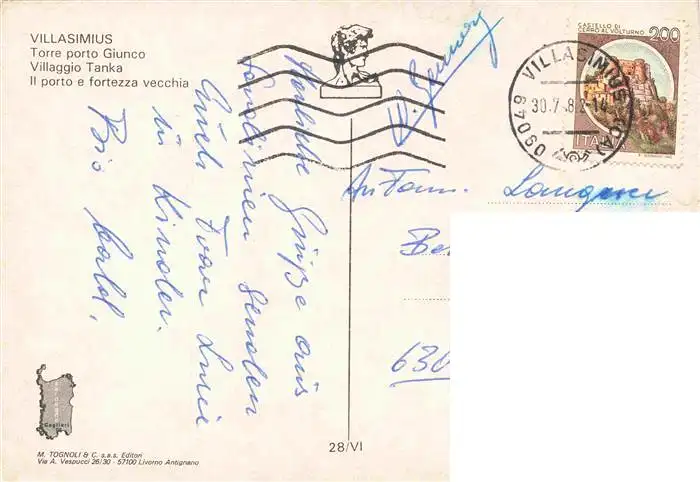 VILLASIMIUS
Torre porto Giunco
Villaggio Tanka
Il porto e fortezza vecchia
Grüße aus
Sardinien senden
Euch
Kinder.
Bis bald.
CASTELLO DI
CERRO AL VOLTURNO
200
ITALIA
09040 VILLASIMIUS (CA)
30.7.8
An Fam.
Be
630
SARDEGNA
Cagliari
M. TOGNOLI & C. s.a.s. Editori
Via A. Vespucci 26/30 - 57100 Livorno Antignano
28/VI